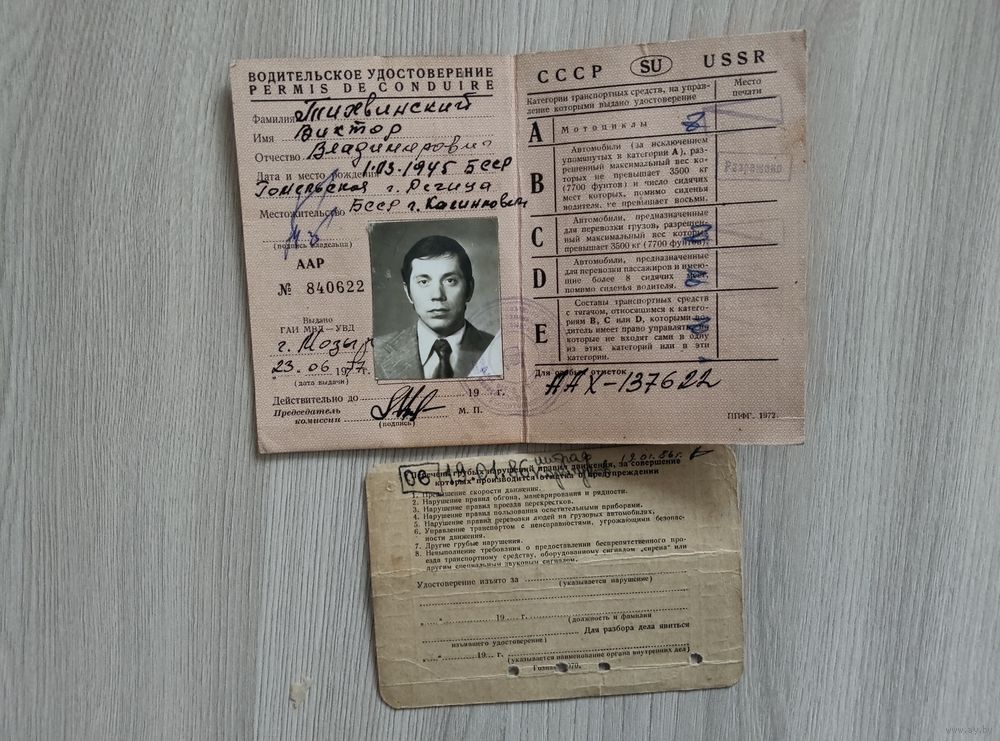 ВОДИТЕЛЬСКОЕ УДОСТОВЕРЕНИЕ
PERMIS DE CONDUIRE
Фамилия Тихвинский
Имя Виктор
Отчество Владимирович
Дата и место рождения 1.03.1945 БССР
Гомельская г. Речица
Местожительство БССР г. Калинкович
(подпись владельца)
ААР
№ 840622
Выдано
ГАИ МВД—УВД
г. Мозырь
„23. 06 1977 г.
(дата выдачи)
Действительно до 19 г.
Председатель
комиссии
(подпись)
М. П.
СССР SU USSR
Категории транспортных средств, на управ-
ление которыми выдано удостоверение
Место
печати
A Мотоциклы
B Автомобили (за исключением
упомянутых в категории А), раз-
решенный максимальный вес ко-
торых не превышает 3500 кг
(7700 фунтов) и число сидячих
мест которых, помимо сиденья
водителя, не превышает восьми.
Разрешено
C Автомобили, предназначенные
для перевозки грузов, разрешен-
ный максимальный вес которых
превышает 3500 кг (7700 фунтов).
D Автомобили, предназначенные
для перевозки пассажиров и имею-
щие более 8 сидячих мест,
помимо сиденья водителя.
E Составы транспортных средств
с тягачом, относящимся к катего-
риям В, С или D, которыми во-
дитель имеет право управлять, но
которые не входят сами в одну
из этих категорий или в эти
категории.
Для особых отметок
ААХ-137622
ППФГ. 1972.
06 19.01.86 штраф 19.01.86 г.
Перечень грубых нарушений правил движения, за совершение
которых производится отметка о предупреждении
1. Превышение скорости движения.
2. Нарушение правил обгона, маневрирования и рядности.
3. Нарушение правил проезда перекрестков.
4. Нарушение правил пользования осветительными приборами.
5. Нарушение правил перевозки людей на грузовых автомобилях.
6. Управление транспортом с неисправностями, угрожающими безопас-
ности движения.
7. Другие грубые нарушения.
8. Невыполнение требования о предоставлении беспрепятственного про-
езда транспортному средству, оборудованному сигналом „сирена" или
другим специальным звуковым сигналом.
Удостоверение изъято за
(указывается нарушение)
19 г.
(должность и фамилия
изъявшего удостоверение)
Для разбора дела явиться
19 г.
(указывается наименование органа внутренних дел)
Гознак. 1970.
www.ay.by